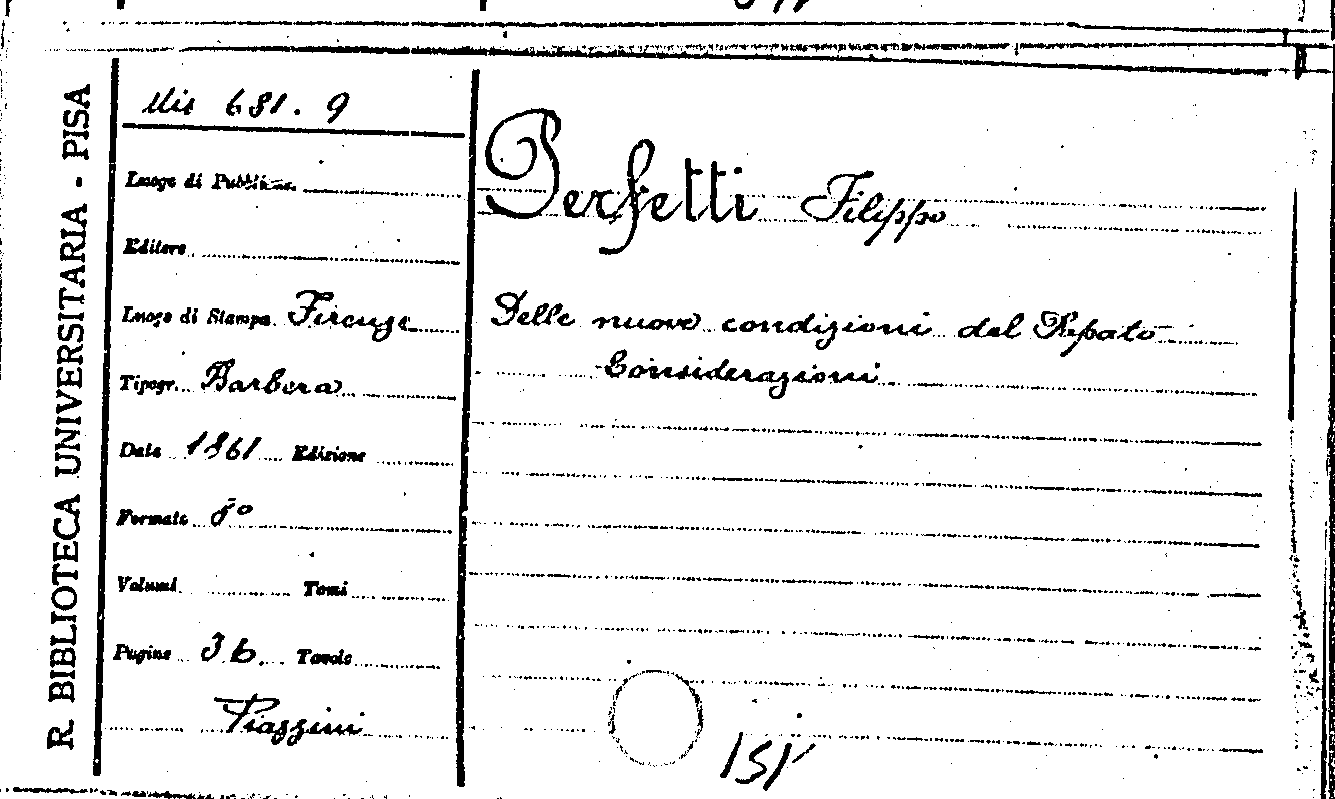 R. BIBLIOTECA UNIVERSITARIA - PISA
Mis 681. 9
Luogo di Pubblicaz.
Editore
Luogo di Stampa Firenze
Tipogr. Barbera
Data 1861 Edizione
Formato 8°
Volumi Tomi
Pagine 36 Tavole
Piazzini
Perfetti Filippo
Delle nuove condizioni del Papato
Considerazioni